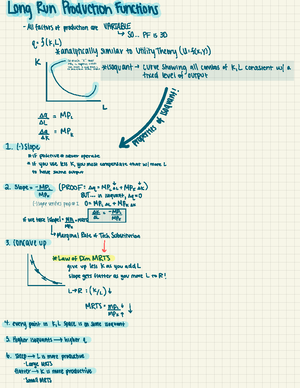 Long Run Production Functions
- All factors of production are VARIABLE
↳ SO... PF is 3D
q = f(K,L)
*analytically similar to Utility Theory (U=f(x,y))
*Isoquant → Curve showing all combos of K,L consistent w/ a fixed level of output
K
L
Δq/ΔL = MPL
Δq/ΔK = MPK
Properties of Isoquants!
1. (-) Slope
*if positive → never operate
*if you use less K, you must compensate that w/ more L
to have same output
2. Slope = -MPL/MPK
(PROOF: Δq = MPL ΔL + MPK ΔK)
BUT... in isoquant, Δq = 0
0 = MPL ΔL + MPK ΔK
ΔK/ΔL = -MPL/MPK
↳ Marginal Rate of Tech Substitution
3. Concave up
*Law of Dim MRTS
give up less K as you add L
slope gets flatter as you move L → R!
L→R: (K/L) ↓
MRTS = MPL ↓ / MPK ↑ ↓
4. every point in K,L space is on some isoquant
5. Higher isoquants → higher q
6. Steep → L is more productive
- Large MRTS
flatter → K is more productive
- Small MRTS